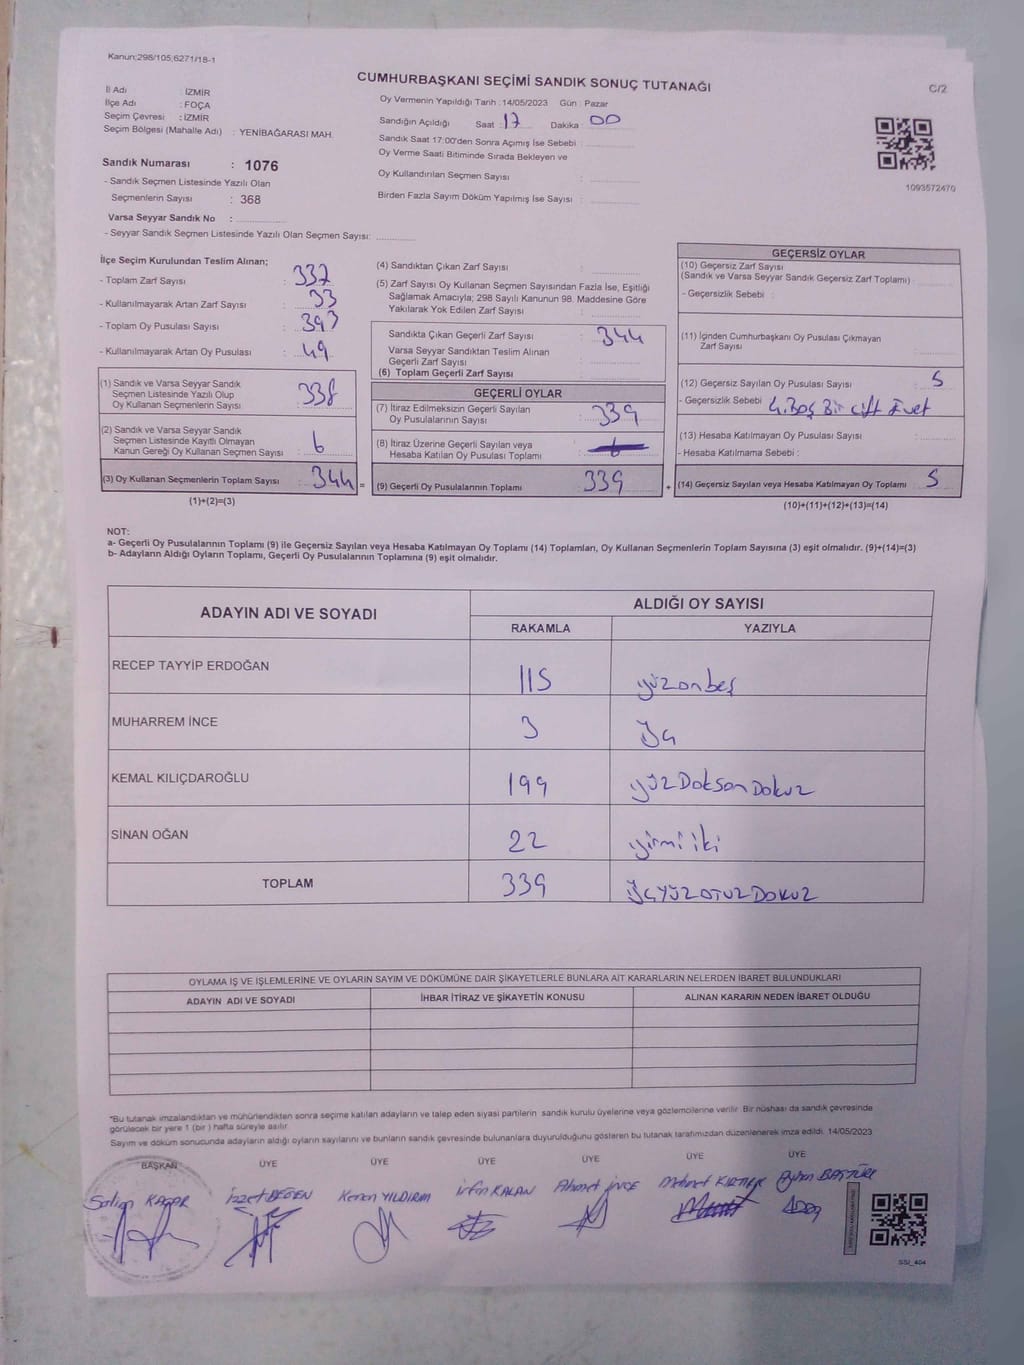 Kanun:298/105;6271/18-1
CUMHURBAŞKANI SEÇİMİ SANDIK SONUÇ TUTANAĞI
C/2
İl Adı : İZMİR
İlçe Adı : FOÇA
Seçim Çevresi : İZMİR
Seçim Bölgesi (Mahalle Adı) : YENİBAĞARASI MAH.
Sandık Numarası : 1076
- Sandık Seçmen Listesinde Yazılı Olan
Seçmenlerin Sayısı : 368
Varsa Seyyar Sandık No :
- Seyyar Sandık Seçmen Listesinde Yazılı Olan Seçmen Sayısı:
Oy Vermenin Yapıldığı Tarih : 14/05/2023 Gün : Pazar
Sandığın Açıldığı Saat : 17 Dakika : 00
Sandık Saat 17:00'den Sonra Açımış İse Sebebi :
Oy Verme Saati Bitiminde Sırada Bekleyen ve
Oy Kullandırılan Seçmen Sayısı :
Birden Fazla Sayım Döküm Yapılmış İse Sayısı :
1093572470
İlçe Seçim Kurulundan Teslim Alınan;
- Toplam Zarf Sayısı :
- Kullanılmayarak Artan Zarf Sayısı : 33
- Toplam Oy Pusulası Sayısı : 393
- Kullanılmayarak Artan Oy Pusulası : 49
(1) Sandık ve Varsa Seyyar Sandık
Seçmen Listesinde Yazılı Olup
Oy Kullanan Seçmenlerin Sayısı : 338
(2) Sandık ve Varsa Seyyar Sandık
Seçmen Listesinde Kayıtlı Olmayan
Kanun Gereği Oy Kullanan Seçmen Sayısı : 6
(3) Oy Kullanan Seçmenlerin Toplam Sayısı : 344 =
(1)+(2)=(3)
(4) Sandıktan Çıkan Zarf Sayısı :
(5) Zarf Sayısı Oy Kullanan Seçmen Sayısından Fazla İse, Eşitliği
Sağlamak Amacıyla; 298 Sayılı Kanunun 98. Maddesine Göre
Yakılarak Yok Edilen Zarf Sayısı :
Sandıkta Çıkan Geçerli Zarf Sayısı : 344
Varsa Seyyar Sandıktan Teslim Alınan
Geçerli Zarf Sayısı :
(6) Toplam Geçerli Zarf Sayısı :
GEÇERLİ OYLAR
(7) İtiraz Edilmeksizin Geçerli Sayılan
Oy Pusulalarının Sayısı : 339
(8) İtiraz Üzerine Geçerli Sayılan veya
Hesaba Katılan Oy Pusulası Toplamı :
(9) Geçerli Oy Pusulalarının Toplamı : 339 +
GEÇERSİZ OYLAR
(10) Geçersiz Zarf Sayısı
(Sandık ve Varsa Seyyar Sandık Geçersiz Zarf Toplamı) :
- Geçersizlik Sebebi :
(11) İçinden Cumhurbaşkanı Oy Pusulası Çıkmayan
Zarf Sayısı :
(12) Geçersiz Sayılan Oy Pusulası Sayısı : 5
- Geçersizlik Sebebi : 4.Boş Bir Çift Evet
(13) Hesaba Katılmayan Oy Pusulası Sayısı :
- Hesaba Katılmama Sebebi :
(14) Geçersiz Sayılan veya Hesaba Katılmayan Oy Toplamı : 5
(10)+(11)+(12)+(13)=(14)
NOT:
a- Geçerli Oy Pusulalarının Toplamı (9) ile Geçersiz Sayılan veya Hesaba Katılmayan Oy Toplamı (14) Toplamları, Oy Kullanan Seçmenlerin Toplam Sayısına (3) eşit olmalıdır. (9)+(14)=(3)
b- Adayların Aldığı Oyların Toplamı, Geçerli Oy Pusulalarının Toplamına (9) eşit olmalıdır.
ADAYIN ADI VE SOYADI ALDIĞI OY SAYISI
RAKAMLA YAZIYLA
RECEP TAYYİP ERDOĞAN 115 yüzonbeş
MUHARREM İNCE 3 üç
KEMAL KILIÇDAROĞLU 199 yüzDoksanDokuz
SİNAN OĞAN 22 yirmiiki
TOPLAM 339 ÜçYüzOTUZDOKUZ
OYLAMA İŞ VE İŞLEMLERİNE VE OYLARIN SAYIM VE DÖKÜMÜNE DAİR ŞİKAYETLERLE BUNLARA AİT KARARLARIN NELERDEN İBARET BULUNDUKLARI
ADAYIN ADI VE SOYADI İHBAR İTİRAZ VE ŞİKAYETİN KONUSU ALINAN KARARIN NEDEN İBARET OLDUĞU
*Bu tutanak imzalandıktan ve mühürlendikten sonra seçime katılan adayların ve talep eden siyasi partilerin sandık kurulu üyelerine veya gözlemcilerine verilir. Bir nüshası da sandık çevresinde
görülecek bir yere 1 (bir ) hafta süreyle asılır.
Sayım ve döküm sonucunda adayların aldığı oyların sayılarını ve bunların sandık çevresinde bulunanlara duyurulduğunu gösteren bu tutanak tarafımızdan düzenlenerek imza edildi. 14/05/2023
BAŞKAN ÜYE ÜYE ÜYE ÜYE ÜYE ÜYE
KAÇAR İzzet Kenan YILDIRIM İrfan KALAN Ahmet İNCE Mehmet Ayhan BAŞTÜRK
SSI_404